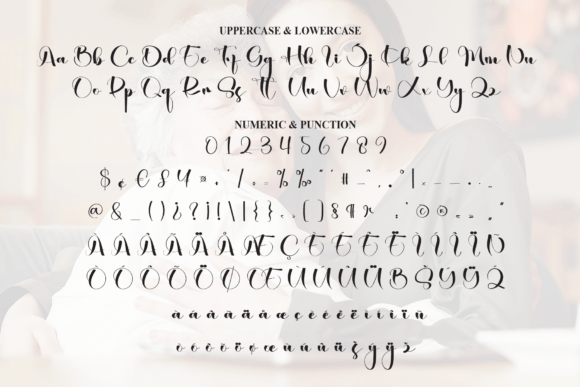 UPPERCASE & LOWERCASE
Aa Bb Cc Dd Ee Ff Gg Hh Ii Jj Kk Ll Mm Nn
Oo Pp Qq Rr Ss Tt Uu Vv Ww Xx Yy Zz
NUMERIC & PUNCTION
0 1 2 3 4 5 6 7 8 9
$ ¢ € £ ¥ % ‰ #
@ & _ ( ) ¿ ? ¡ ! \ | { } [ ] § ¶ © ®
À Á Â Ã Ä Å Æ Ç È É Ê Ë Ì Í Î Ï
Ò Ó Ô Õ Ö Ø Œ Ù Ú Û Ü
à á â ã ä å æ ç è é ê ë ì í î ï
ò ó ô õ ö ø œ ù ú û ü